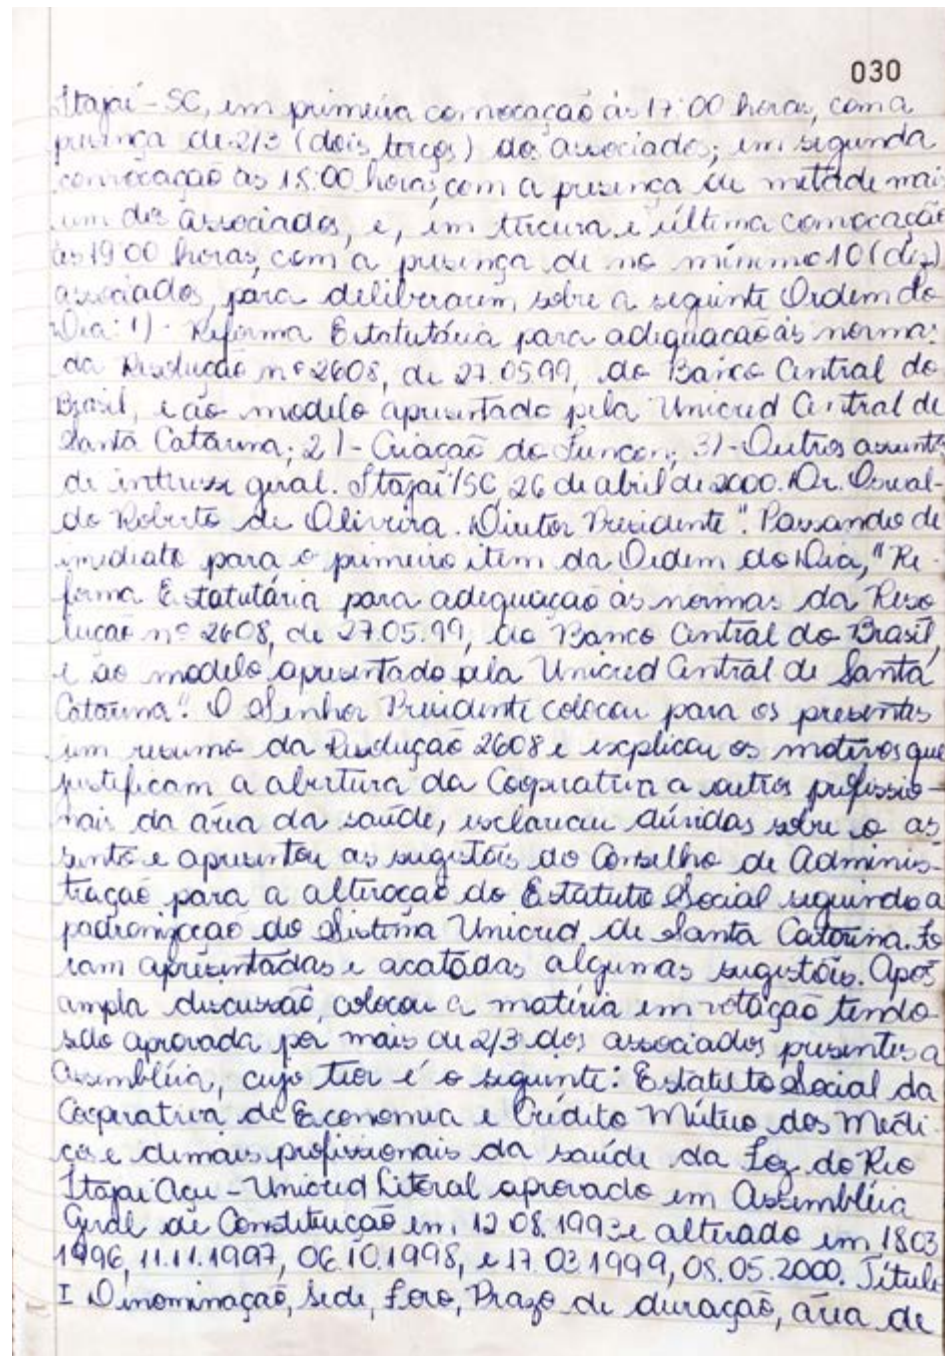 030
Itajaí - SC, em primeira convocação às 17:00 horas, com a
presença de 2/3 (dois terços) dos associados; em segunda
convocação às 18:00 horas, com a presença de metade mais
um dos associados, e, em terceira e última convocação
às 19:00 horas, com a presença de no mínimo 10 (dez)
associados, para deliberarem sobre a seguinte Ordem do
Dia: 1) - Reforma Estatutária para adequação às normas
da Resolução nº 2608, de 27.05.99, do Banco Central do
Brasil, e ao modelo apresentado pela Unicred Central de
Santa Catarina; 2) - Criação do Funcon; 3) - Outros assuntos
de interesse geral. Itajaí/SC, 26 de abril de 2000. Dr. Oswal-
do Roberto de Oliveira. Diretor Presidente". Passando de
imediato para o primeiro item da Ordem do Dia, "Re-
forma Estatutária para adequação às normas da Reso
lução nº 2608, de 27.05.99, do Banco Central do Brasil,
e ao modelo apresentado pela Unicred Central de Santa
Catarina". O Senhor Presidente colocou para os presentes
um resumo da Resolução 2608 e explicou os motivos que
justificam a abertura da Cooperativa a outros profissio-
nais da área da saúde, esclareceu dúvidas sobre o as
sunto e apresentou as sugestões do Conselho de Adminis-
tração para a alteração do Estatuto Social seguindo a
padronização do Sistema Unicred de Santa Catarina. Fo
ram apresentadas e acatadas algumas sugestões. Após
ampla discussão, colocou a matéria em votação tendo
sido aprovada por mais de 2/3 dos associados presentes a
Assembléia, cujo teor é o seguinte: Estatuto Social da
Cooperativa de Economia e Crédito Mútuo dos Médi-
cos e demais profissionais da saúde da Foz do Rio
Itajaí Açu - Unicred Litoral aprovado em Assembléia
Geral de Constituição em 12.08.1993 e alterado em 18.03
1996, 11.11.1997, 06.10.1998, e 17.03.1999, 08.05.2000. Título
I Denominação, Sede, Foro, Prazo de duração, área de